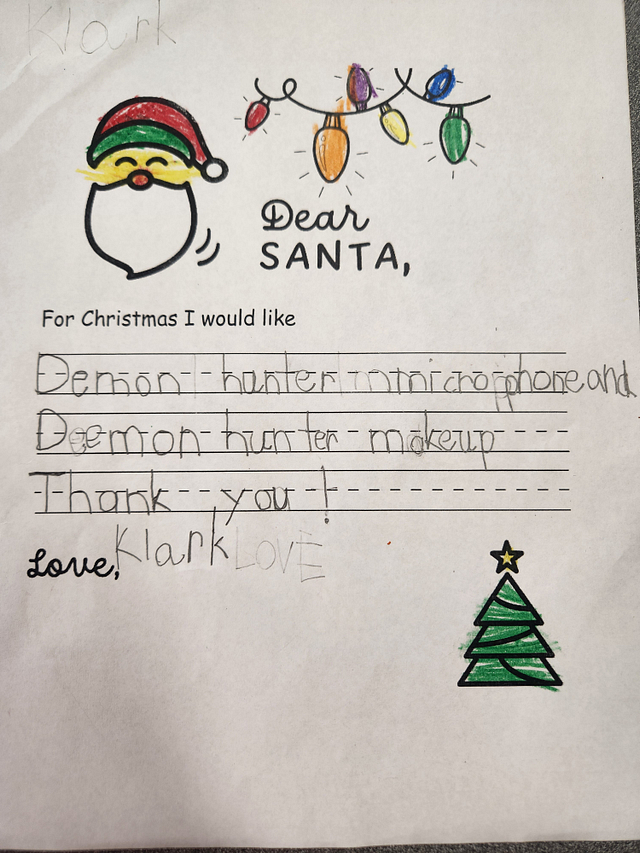 Klark
Dear
SANTA,
For Christmas I would like
Demon hunter microphone and
Deemon hunter makeup
Thank you!
Love, Klark LOVE